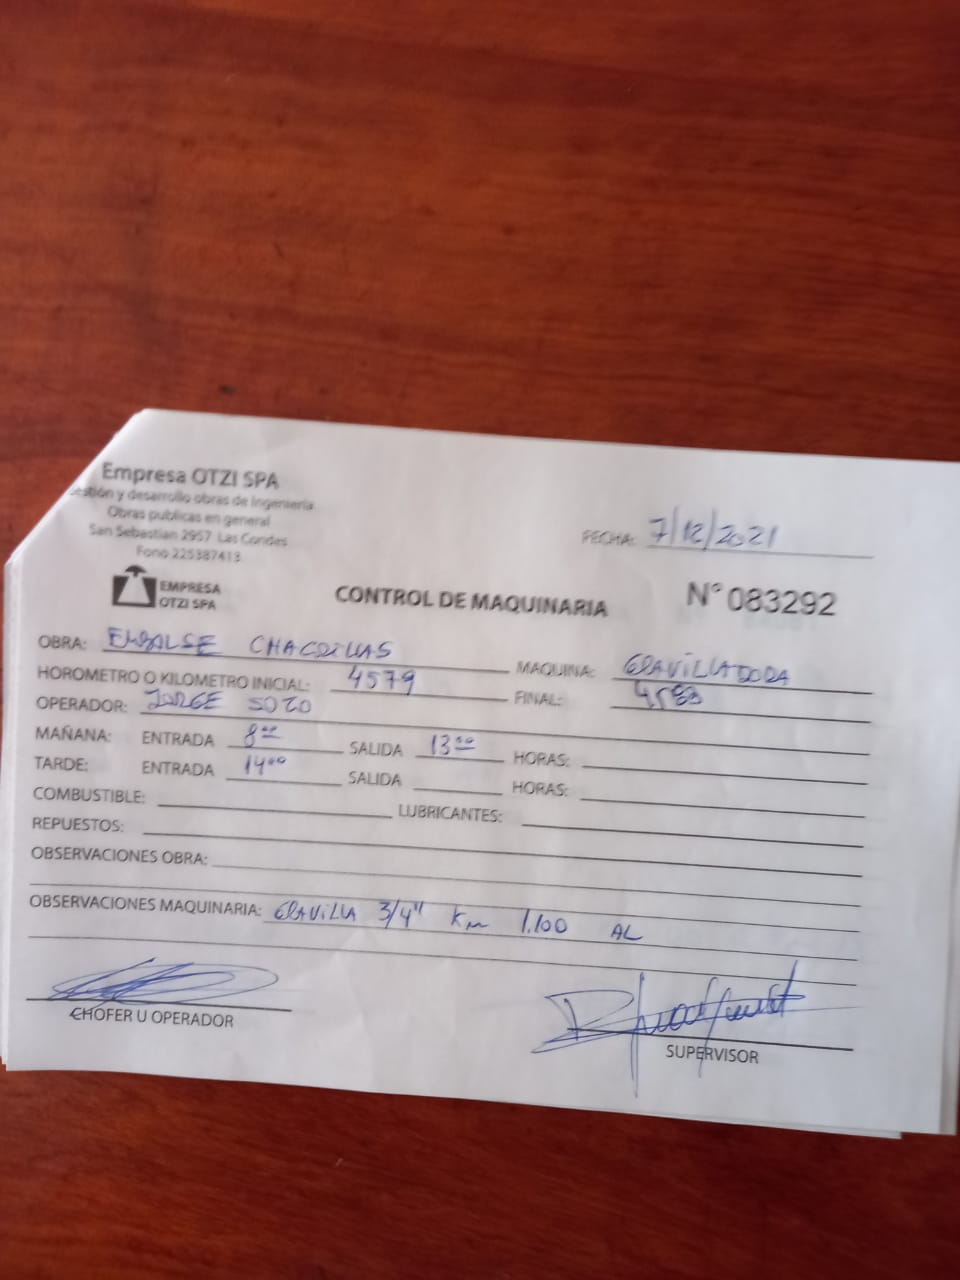 Empresa OTZI SPA
Gestión y desarrollo obras de Ingeniería
Obras publicas en general
San Sebastian 2957 Las Condes
Fono 225387413
FECHA: 7/12/2021
EMPRESA
OTZI SPA
CONTROL DE MAQUINARIA
N° 083292
OBRA: EMBALSE CHACRILLAS MAQUINA: GRAVILLADORA
HOROMETRO O KILOMETRO INICIAL: 4579 FINAL:
OPERADOR: JORGE SOTO
MAÑANA: ENTRADA 8:00 SALIDA 13:00 HORAS:
TARDE: ENTRADA 14:00 SALIDA HORAS:
COMBUSTIBLE: LUBRICANTES:
REPUESTOS:
OBSERVACIONES OBRA:
OBSERVACIONES MAQUINARIA: GRAVILLA 3/4" Km 1.100 AL
CHOFER U OPERADOR
SUPERVISOR